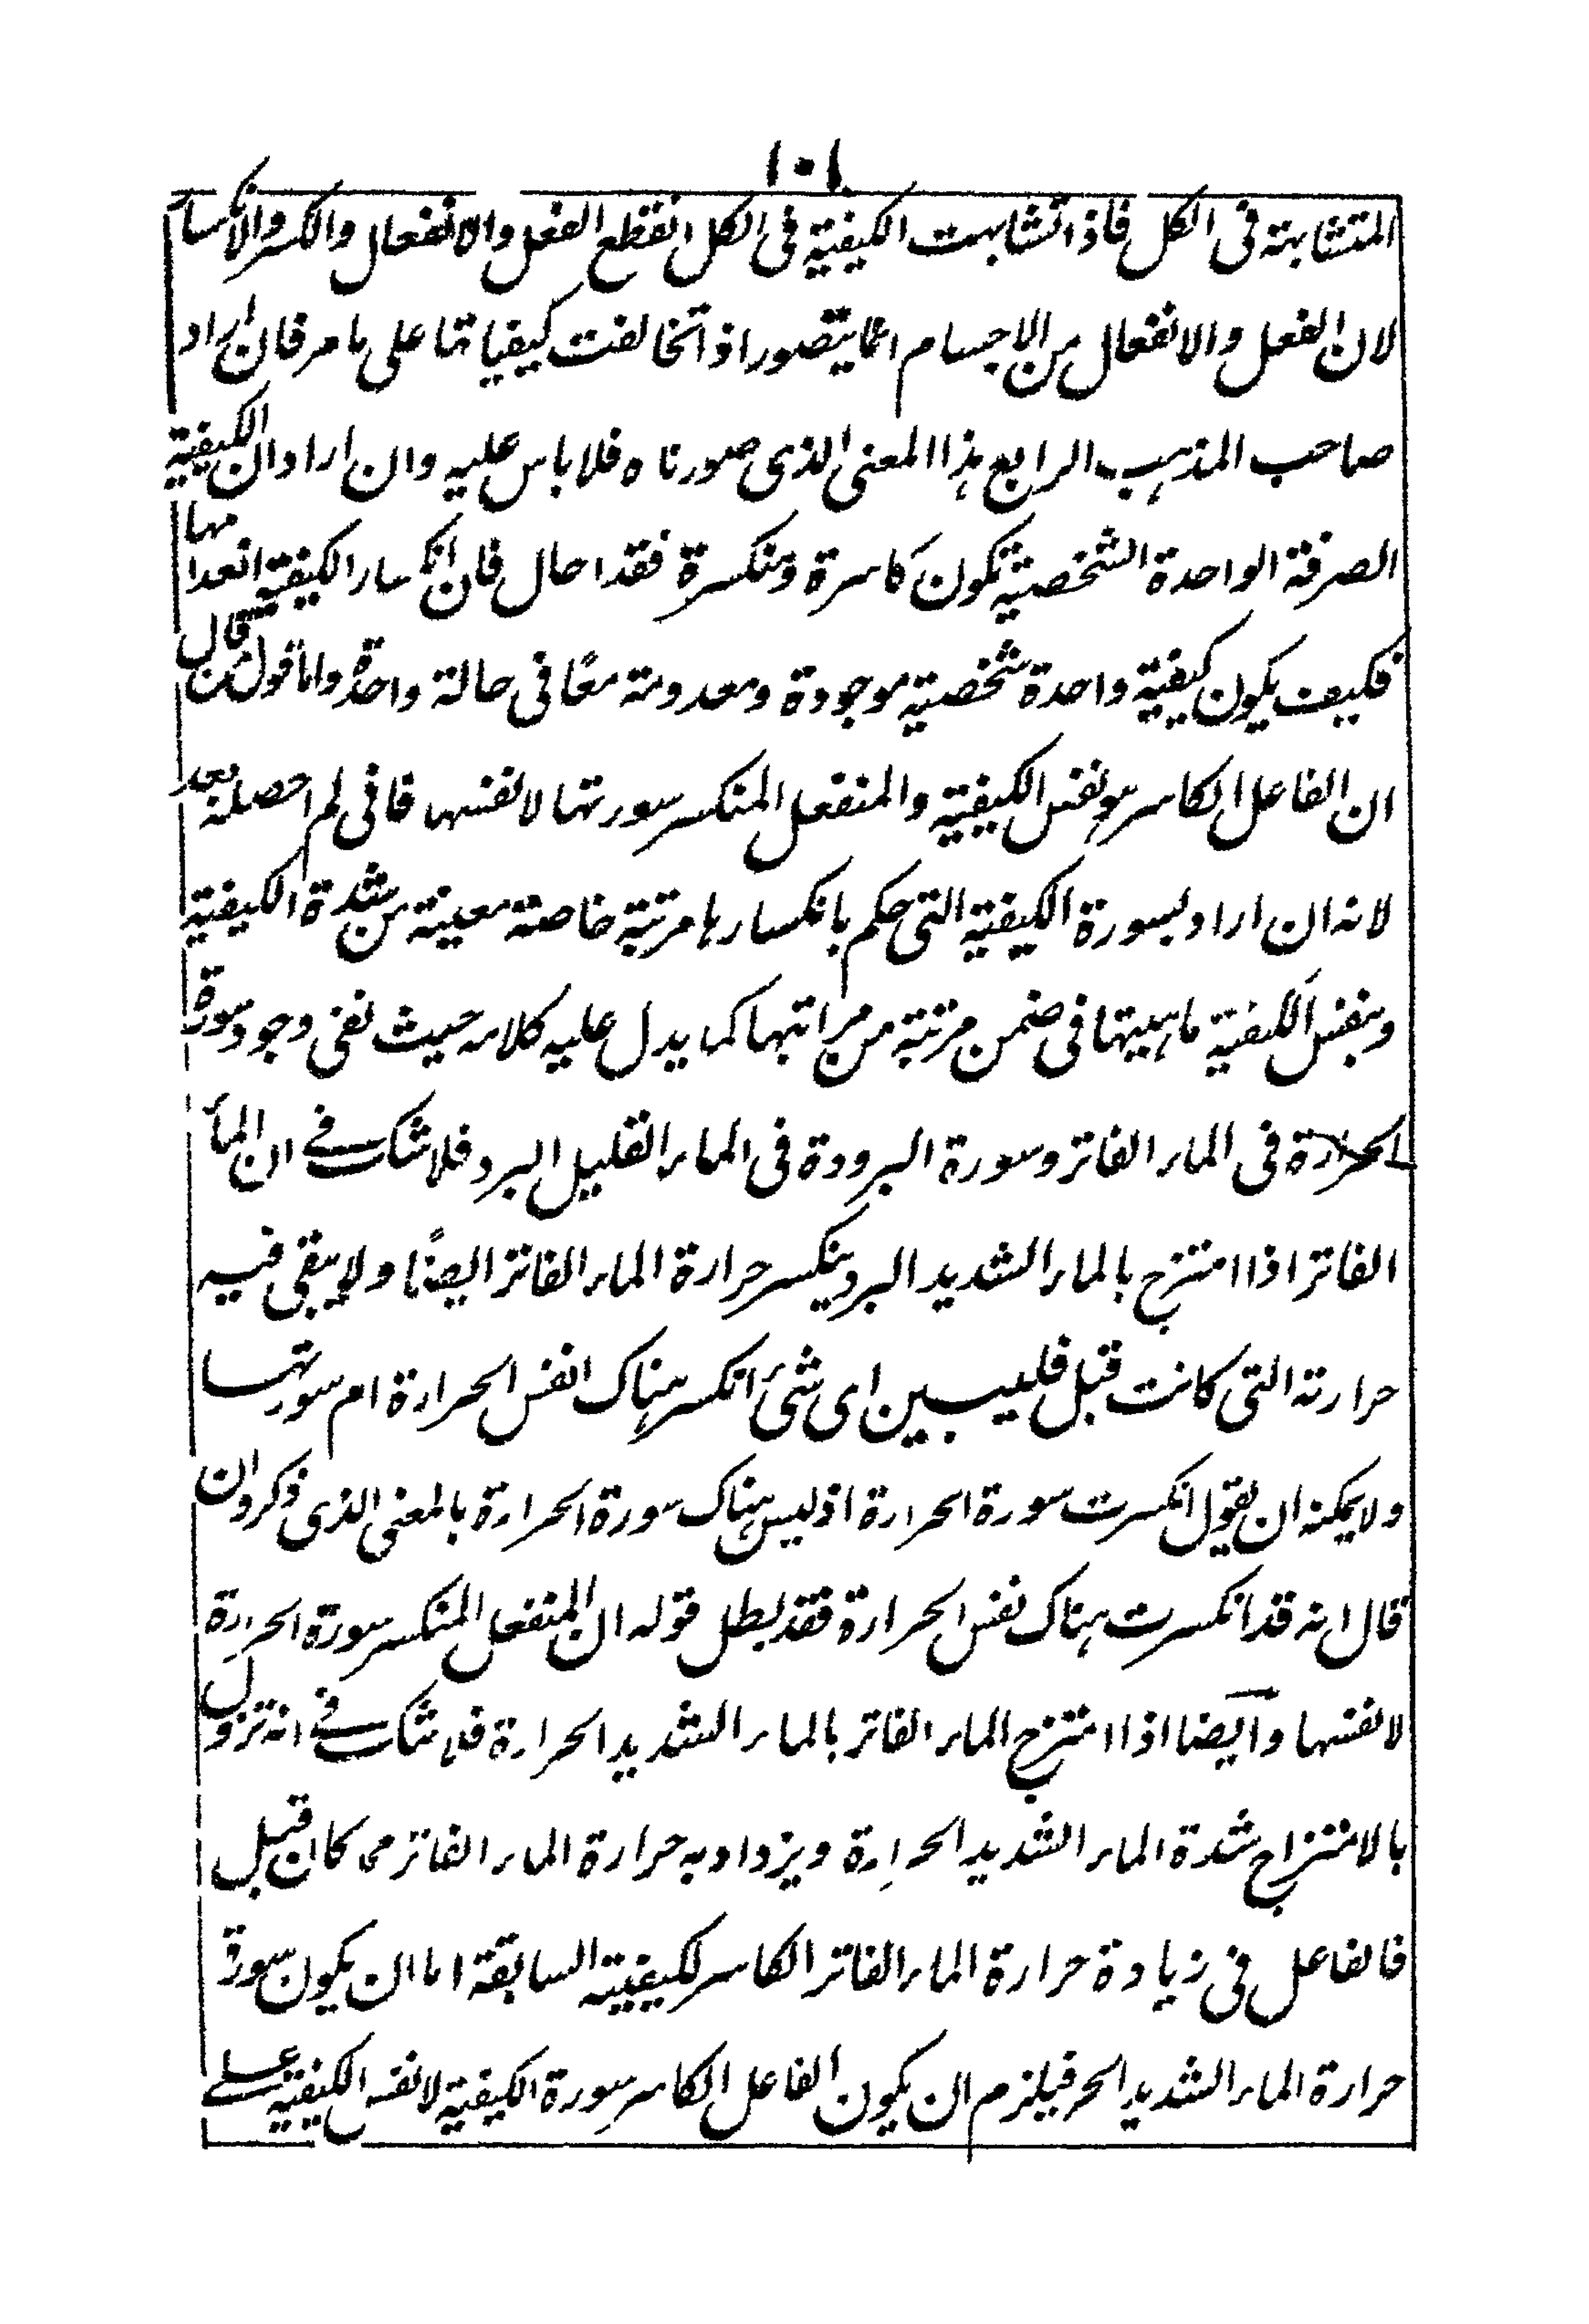 ١٠١
المتشابهة فى الكل فاذا تشابهت الكيفية فى الكل انقطع الفعل والانفعال والكسر والانكسار
لان الفعل والانفعال من الاجسام انما يتصور اذا تخالفت كيفياتها على ما مر فان اراد
صاحب المذهب الرابع هذا المعنى الذى صورناه فلا باس عليه وان اراد ان الكيفية
الصرفة الواحدة الشخصية تكون كاسرة ومنكسرة فقد احال فان انكسار الكيفية انعدامها
فكيف يكون كيفية واحدة شخصية موجودة ومعدومة معًا فى حالة واحدة واما قول من قال
ان الفاعل الكاسر هو نفس الكيفية والمنفعل المنكسر سورتها لا نفسها فانى لم احصله بعد
لانه ان اراد بسورة الكيفية التى حكم بانكسارها مرتبة خاصة معينة من شدة الكيفية
وبنفس الكيفية ماهيتها فى ضمن مرتبة من مراتبها كما يدل عليه كلامه حيث نفى وجود سورة
الحرارة فى الماء الفاتر وسورة البرودة فى الماء القليل البرد فلا شك فى ان الماء
الفاتر اذا امتزج بالماء الشديد البرد ينكسر حرارة الماء الفاتر ايضًا ولا يبقى فيه
حرارته التى كانت قبل فليبين اى شئ انكسر هناك انفس الحرارة ام سورتها
ولا يمكنه ان يقول انكسرت سورة الحرارة اذ ليس هناك سورة الحرارة بالمعنى الذى ذكر وان
قال انه قد انكسرت هناك نفس الحرارة فقد بطل قوله ان المنفعل المنكسر سورة الحرارة
لا نفسها وايضا اذا امتزج الماء الفاتر بالماء الشديد الحرارة فلا شك فى انه تزول
بالامتزاج شدة الماء الشديد الحرارة ويزداد به حرارة الماء الفاتر مما كان قبل
فالفاعل فى زيادة حرارة الماء الفاتر الكاسر لكيفيته السابقة اما ان يكون سورة
حرارة الماء الشديد الحر فيلزم ان يكون الفاعل الكاسر سورة الكيفية لا نفس الكيفية على